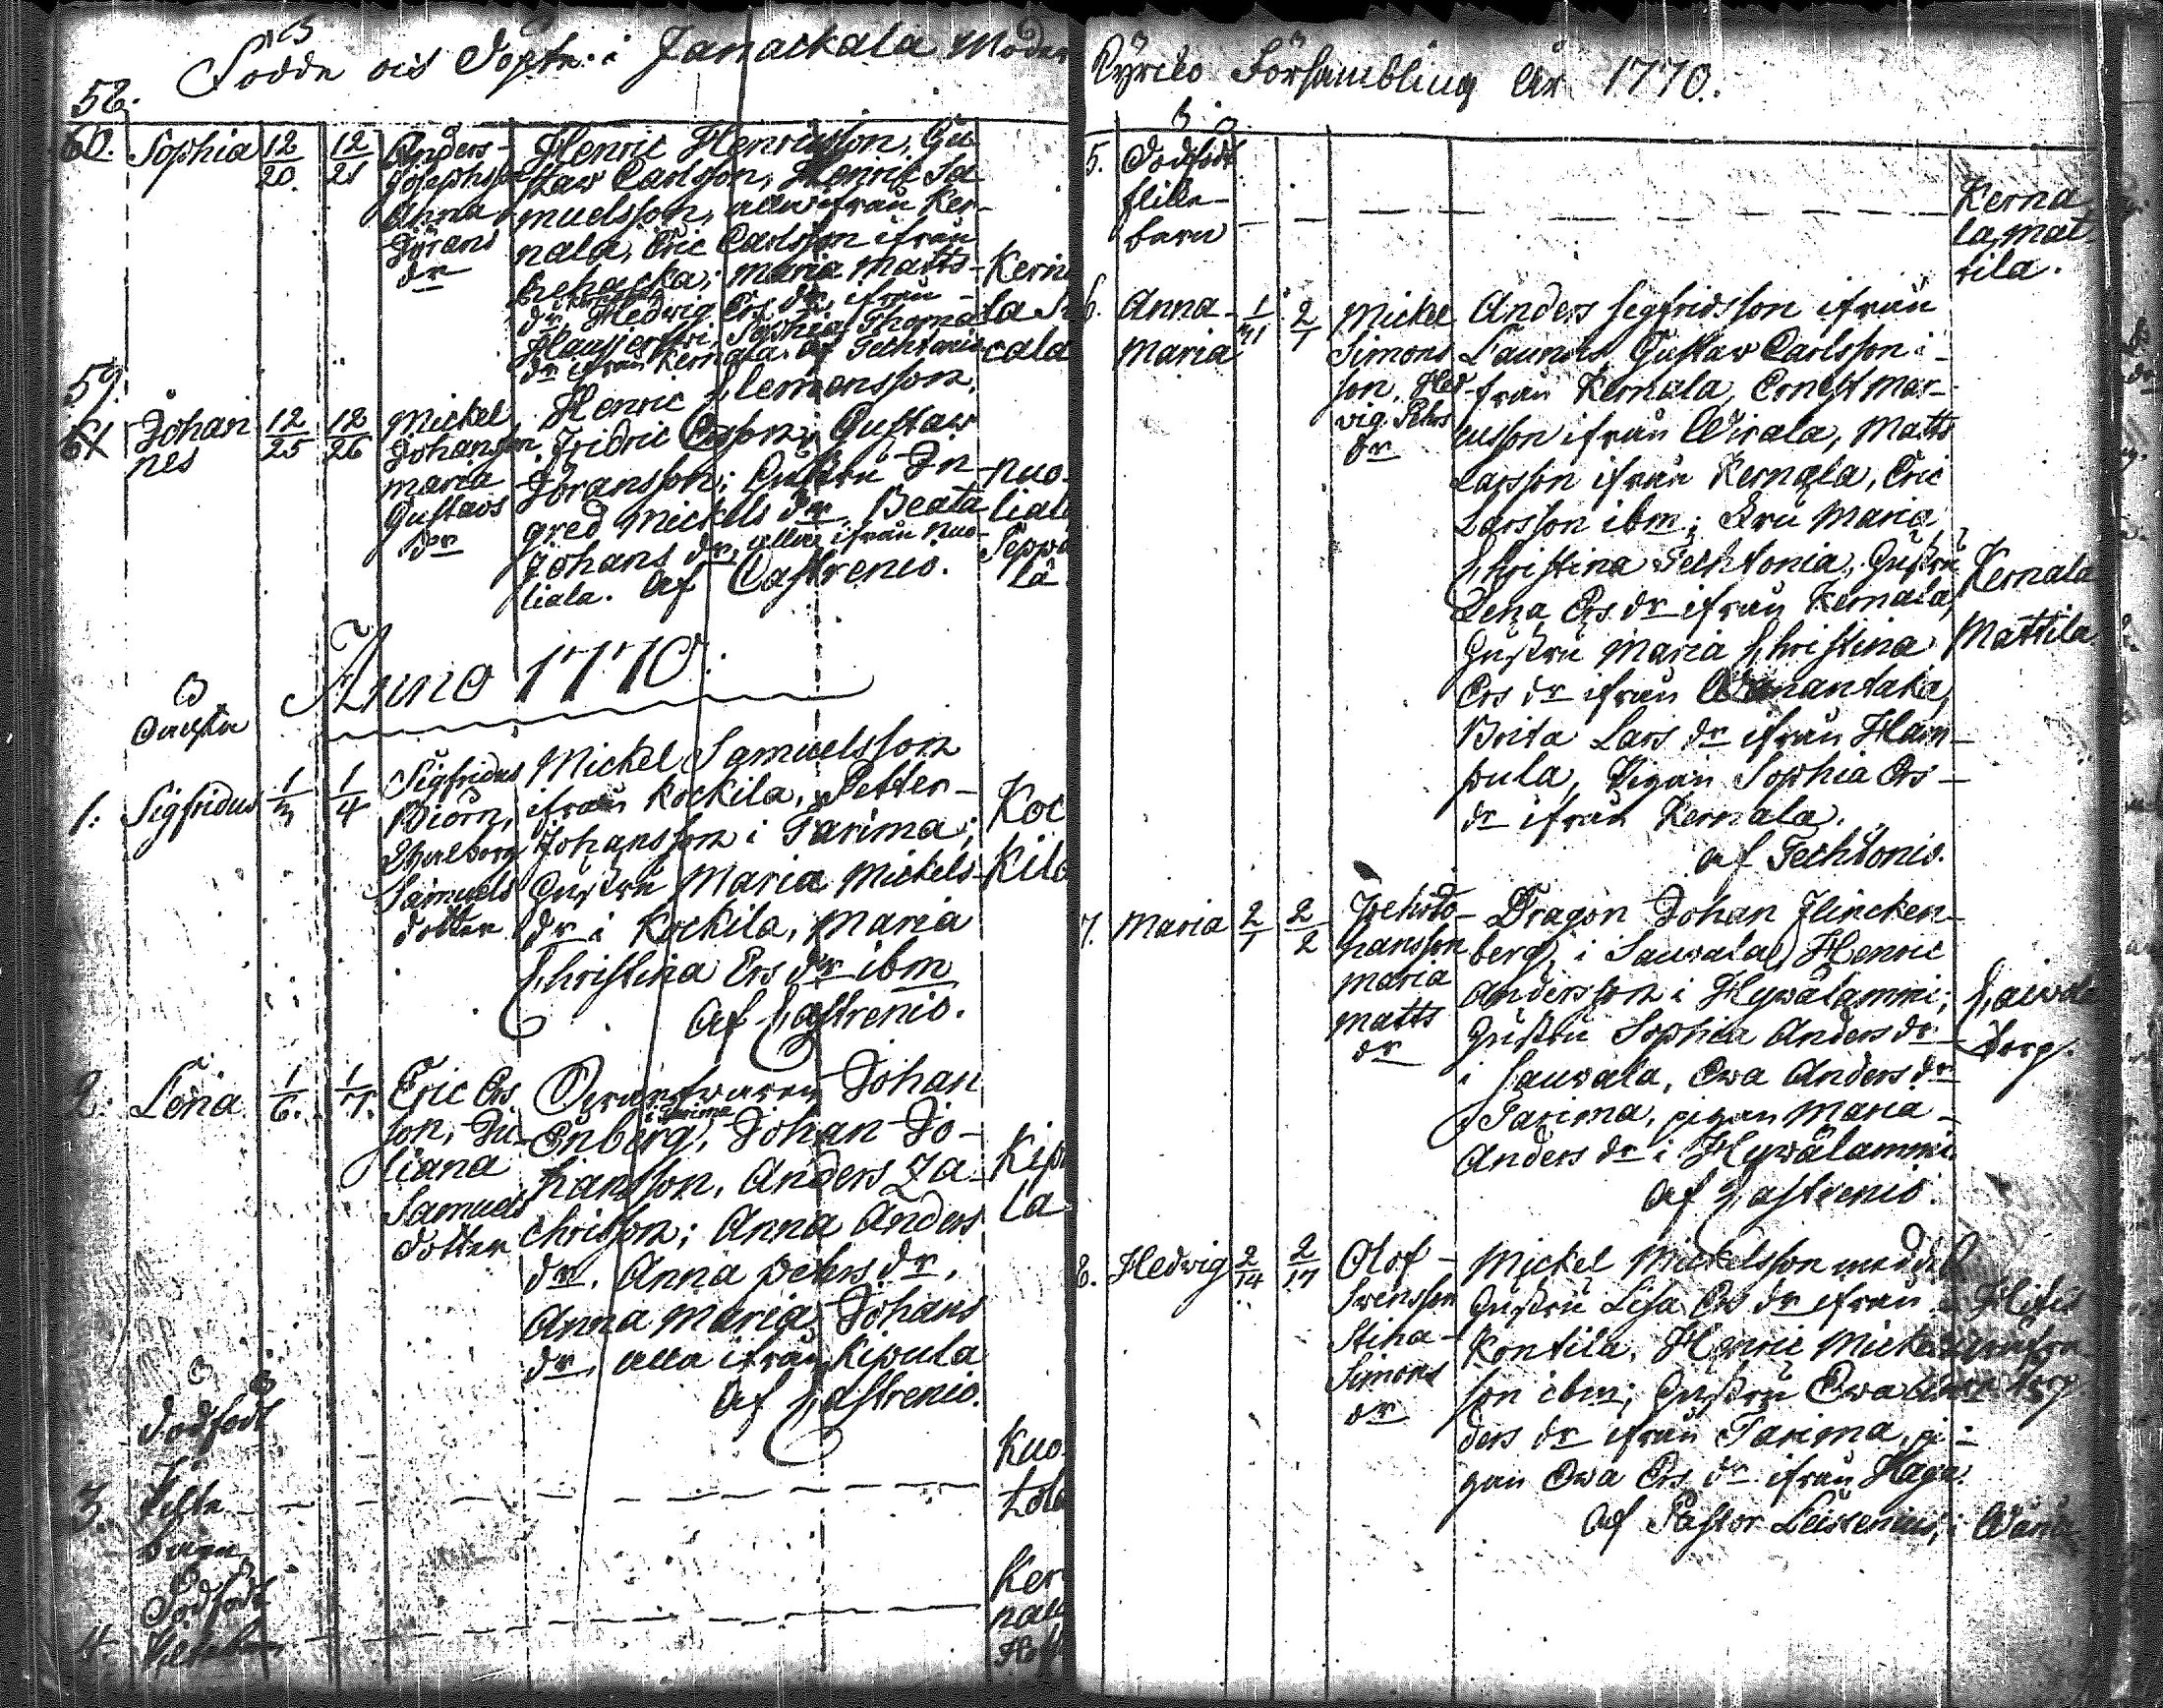 Födde och Döpte i Janackala Moder
58.
60. Sophia 12/20. 12/21
Anders
Josephsson
Anna
Jörans
dr
Henric Henricsson, Gu
staw Carlsson, Henric Sa
muelsson, alla ifrån Ker-
nala, Eric Carlsson ifrån
maria Matts-
dr, Hedwig Ers dr, ifrån
Sophia Thomæ
dr ifrån Kernala. af Techtonio
Kerna
la
cala
59.
61 Johan
nes
12/25 12/26
Mickel
Johansson
maria
Gustavs
dr
Henric Clemensson,
Fridric Ersson, Gustaw
Joransson; Hustru In-
gred Mickels dr, Beata
Johans dr, alla ifrån Nuo-
liala. Af Castrenio.
Nuo-
liala
Seppä
lä
Anno 1770.
1. Sigfridus 1/3 1/4
Sigfridus
Biörn,
Walborg
Samuels
dotter
Mickel Samuelsson
ifrån Kockila, Petter-
Johansson i Tarima;
Hustru Maria Mickels-
dr i Kockila, Maria
Christina Ers dr ibm
Af Castrenio.
Koc
kila
2. Lena 1/6. 1/7.
Eric Ers
son, Ju
liana
Samuels
dotter
Johan
i Tarima
Enberg, Johan Jo-
hansson, Anders Za-
chrisson; Anna Anders
dr, Anna Pehrs dr,
Anna Maria Johans
dr, alla ifrån Kipula
Af Castrenio.
Kipu
la
dödfödt
3. flicke
barn
Kuo
tola
Dödfödt
4.
Ker
nala
Kyrko Försambling År 1770.
5. Dödfödt
flicke-
barn
Kerna
la, Mat
tila.
6. Anna-
Maria
1/31 2/1
Mickel
Simons
son, Hed
vig Pehrs
dr
Anders Sigfridsson ifrån
Launois, Gustaw Carlsson i-
från Kernala, Ernst Mar-
cusson ifrån Wirala, Matts
Larsson ifrån Kernala, Eric
Larsson ibm; Fru Maria
Christina Techtonia, Hustru
Lena Ers dr ifrån Kernala,
Hustru Maria Christina
Ers dr ifrån Wanantaka,
Brita Lars dr ifrån Ham-
pula, Pigan Sophia Ers-
dr ifrån Kernala.
af Techtonio.
Kernala
Mattila
7. Maria 2/1 2/2
hansson
Maria
Matts
dr
Dragon Johan Flincken-
berg, i Sauvala, Henric
Andersson i Hywälammi;
Hustru Sophia Anders dr
i Sauvala, Ewa Anders dr
Tarima, pigan Maria
Anders dr i Hywälammi
Af Castrenio.
torp.
8. Hedvig 2/14 2/17
Olof
Svensson
Stina
Simons
dr
Mickel Mickelsson med
Hustru Lisa Ers dr ifrån
Kontila, Henric Mickels
son ibm; Hustru Ewa An
ders dr ifrån Tarima, pi-
gan Ewa Ers dr ifrån Haga.
Af Pastor Leistenius, i Wånå
torp